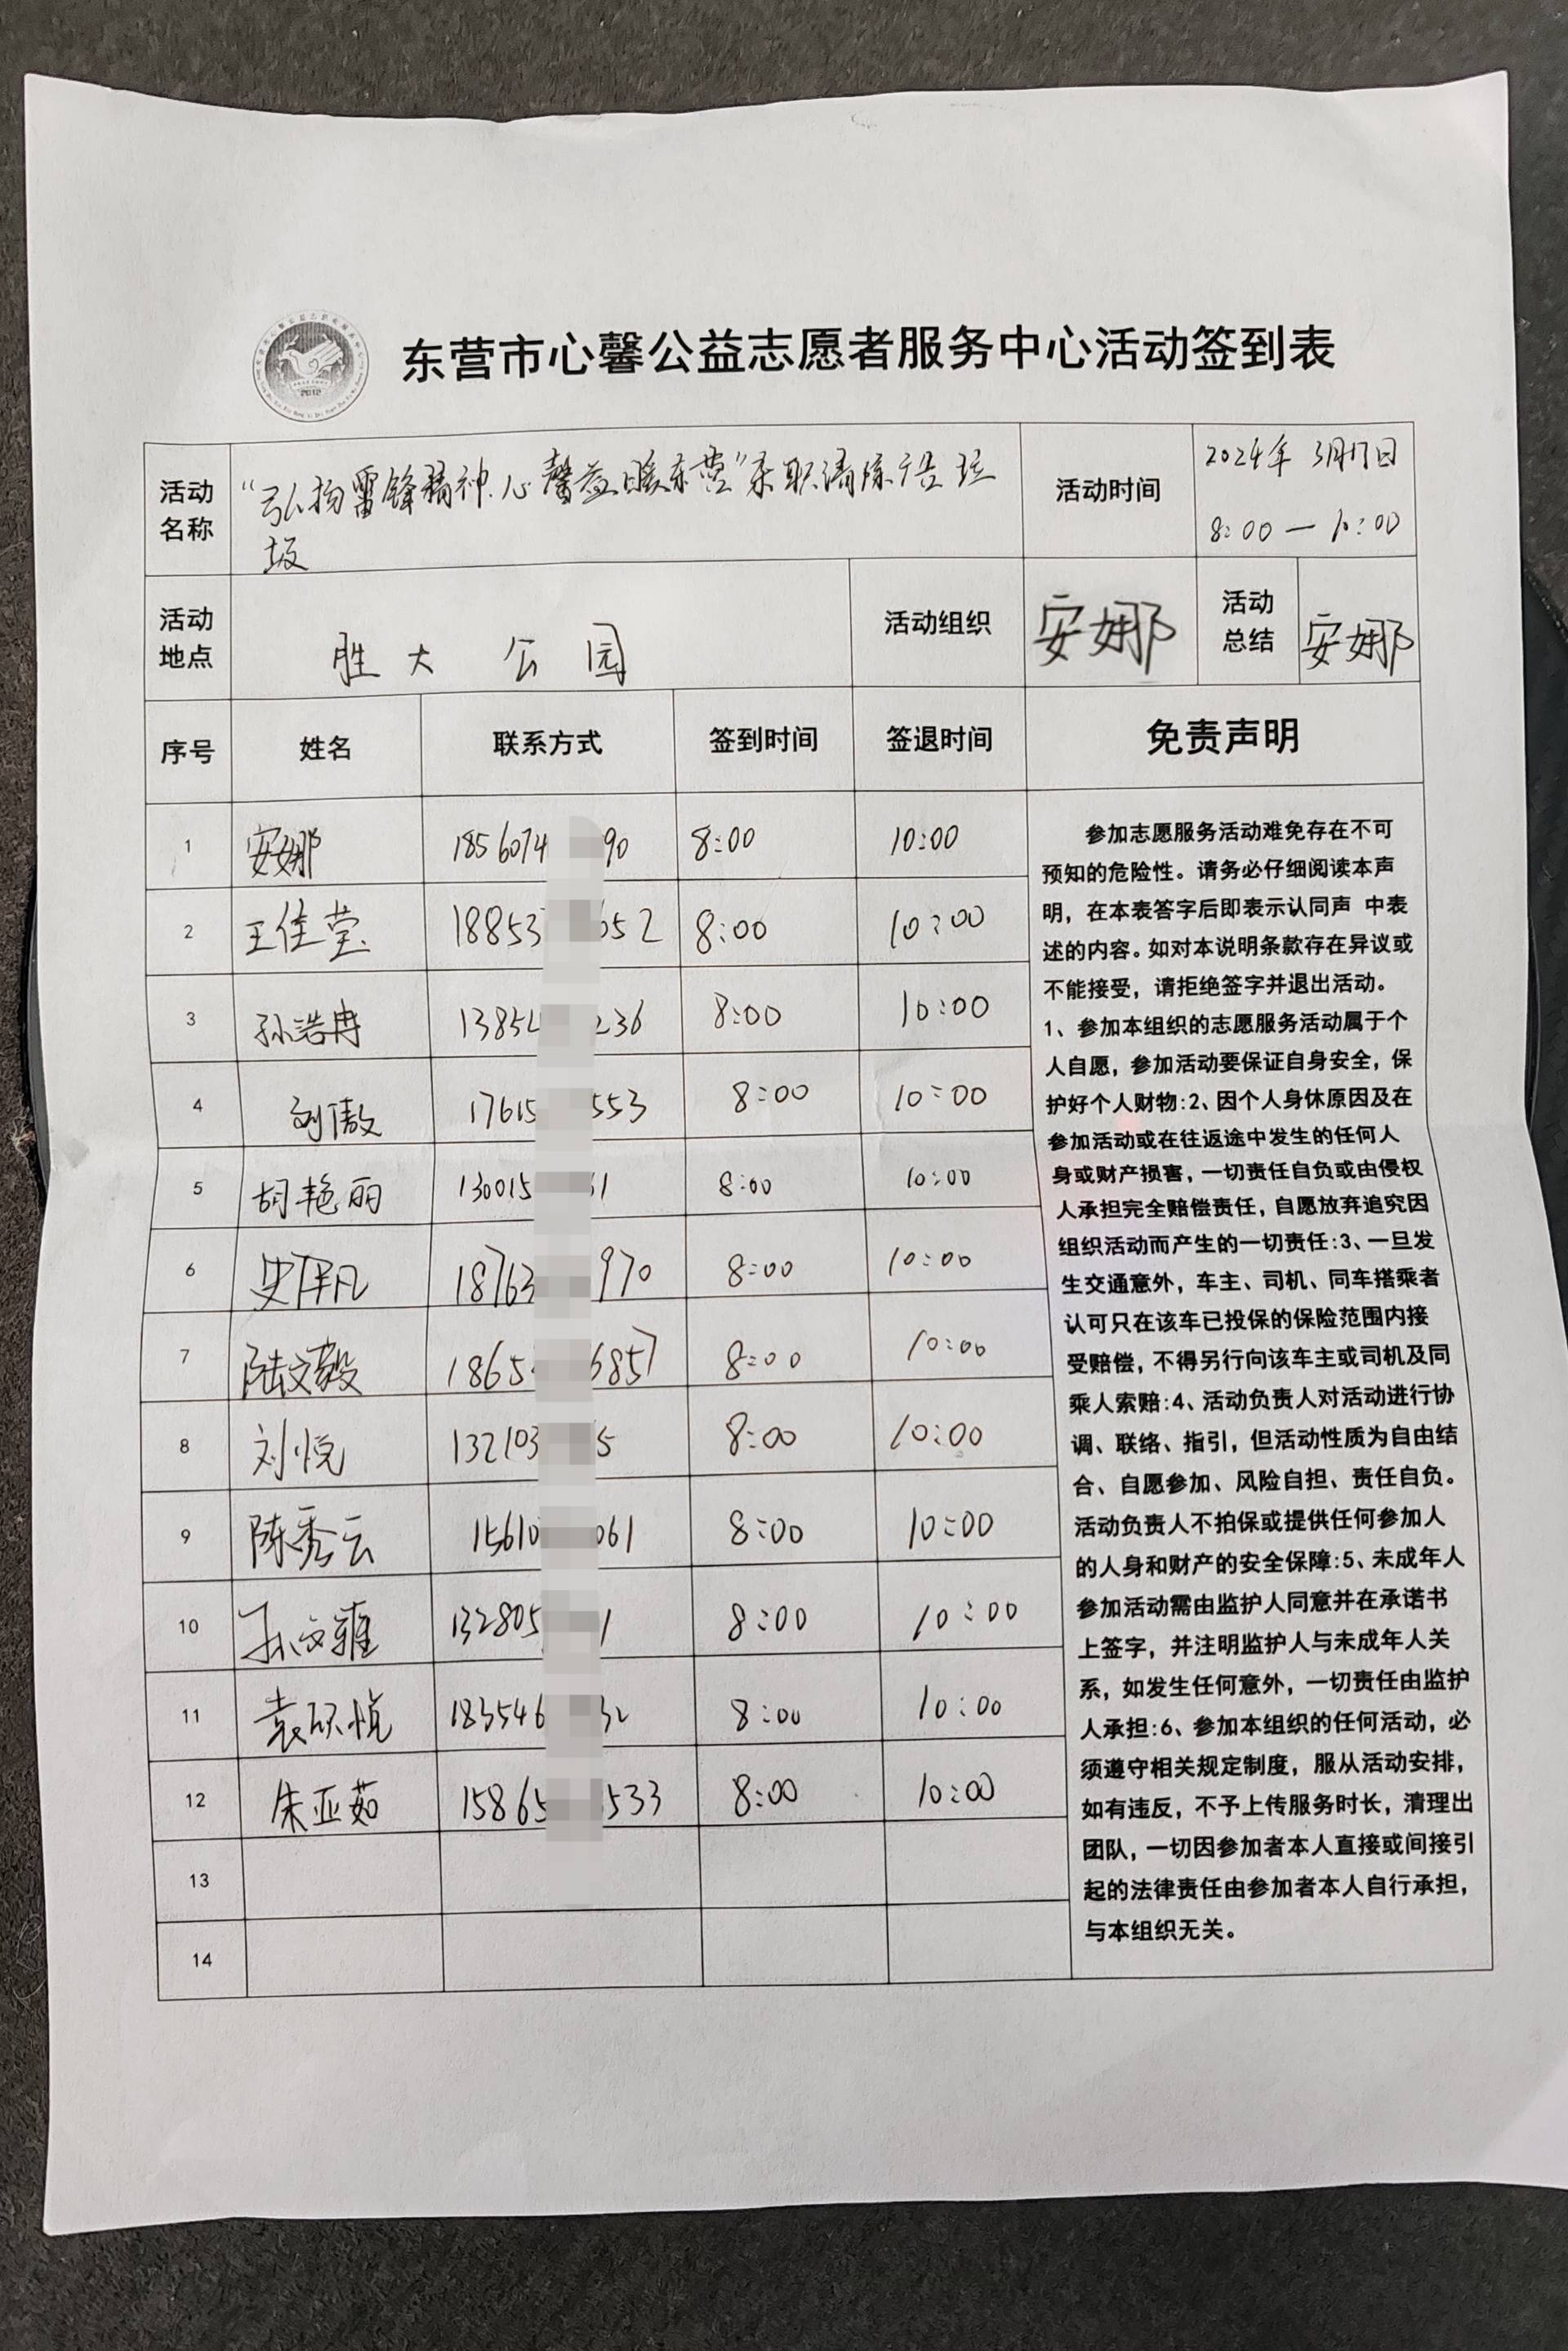 东营市心馨公益志愿者服务中心活动签到表
2012
活动名称
“弘扬雷锋精神.心馨益暖东营”东职清除广告垃
圾
活动时间
2024年 3月17日
8:00 — 10:00
活动地点
胜大 公园
活动组织
安娜
活动总结
安娜
序号 姓名 联系方式 签到时间 签退时间 免责声明
1 安娜 1856074 90 8:00 10:00
2 王佳莹 18853 652 8:00 10:00
3 孙浩冉 13854 236 8:00 10:00
4 刘傲 17615 553 8:00 10:00
5 胡艳丽 130015 61 8:00 10:00
6 史泽凡 18763 970 8:00 10:00
7 陆文毅 1865 6857 8:00 10:00
8 刘悦 132103 5 8:00 10:00
9 陈秀云 15610 061 8:00 10:00
10 孙文雅 132805 1 8:00 10:00
11 袁硕悦 183546 32 8:00 10:00
12 朱亚茹 15865 533 8:00 10:00
13
14
参加志愿服务活动难免存在不可
预知的危险性。请务必仔细阅读本声
明，在本表答字后即表示认同声 中表
述的内容。如对本说明条款存在异议或
不能接受，请拒绝签字并退出活动。
1、参加本组织的志愿服务活动属于个
人自愿，参加活动要保证自身安全，保
护好个人财物:2、因个人身休原因及在
参加活动或在往返途中发生的任何人
身或财产损害，一切责任自负或由侵权
人承担完全赔偿责任，自愿放弃追究因
组织活动而产生的一切责任:3、一旦发
生交通意外，车主、司机、同车搭乘者
认可只在该车已投保的保险范围内接
受赔偿，不得另行向该车主或司机及同
乘人索赔:4、活动负责人对活动进行协
调、联络、指引，但活动性质为自由结
合、自愿参加、风险自担、责任自负。
活动负责人不拍保或提供任何参加人
的人身和财产的安全保障:5、未成年人
参加活动需由监护人同意并在承诺书
上签字，并注明监护人与未成年人关
系，如发生任何意外，一切责任由监护
人承担:6、参加本组织的任何活动，必
须遵守相关规定制度，服从活动安排，
如有违反，不予上传服务时长，清理出
团队，一切因参加者本人直接或间接引
起的法律责任由参加者本人自行承担，
与本组织无关。